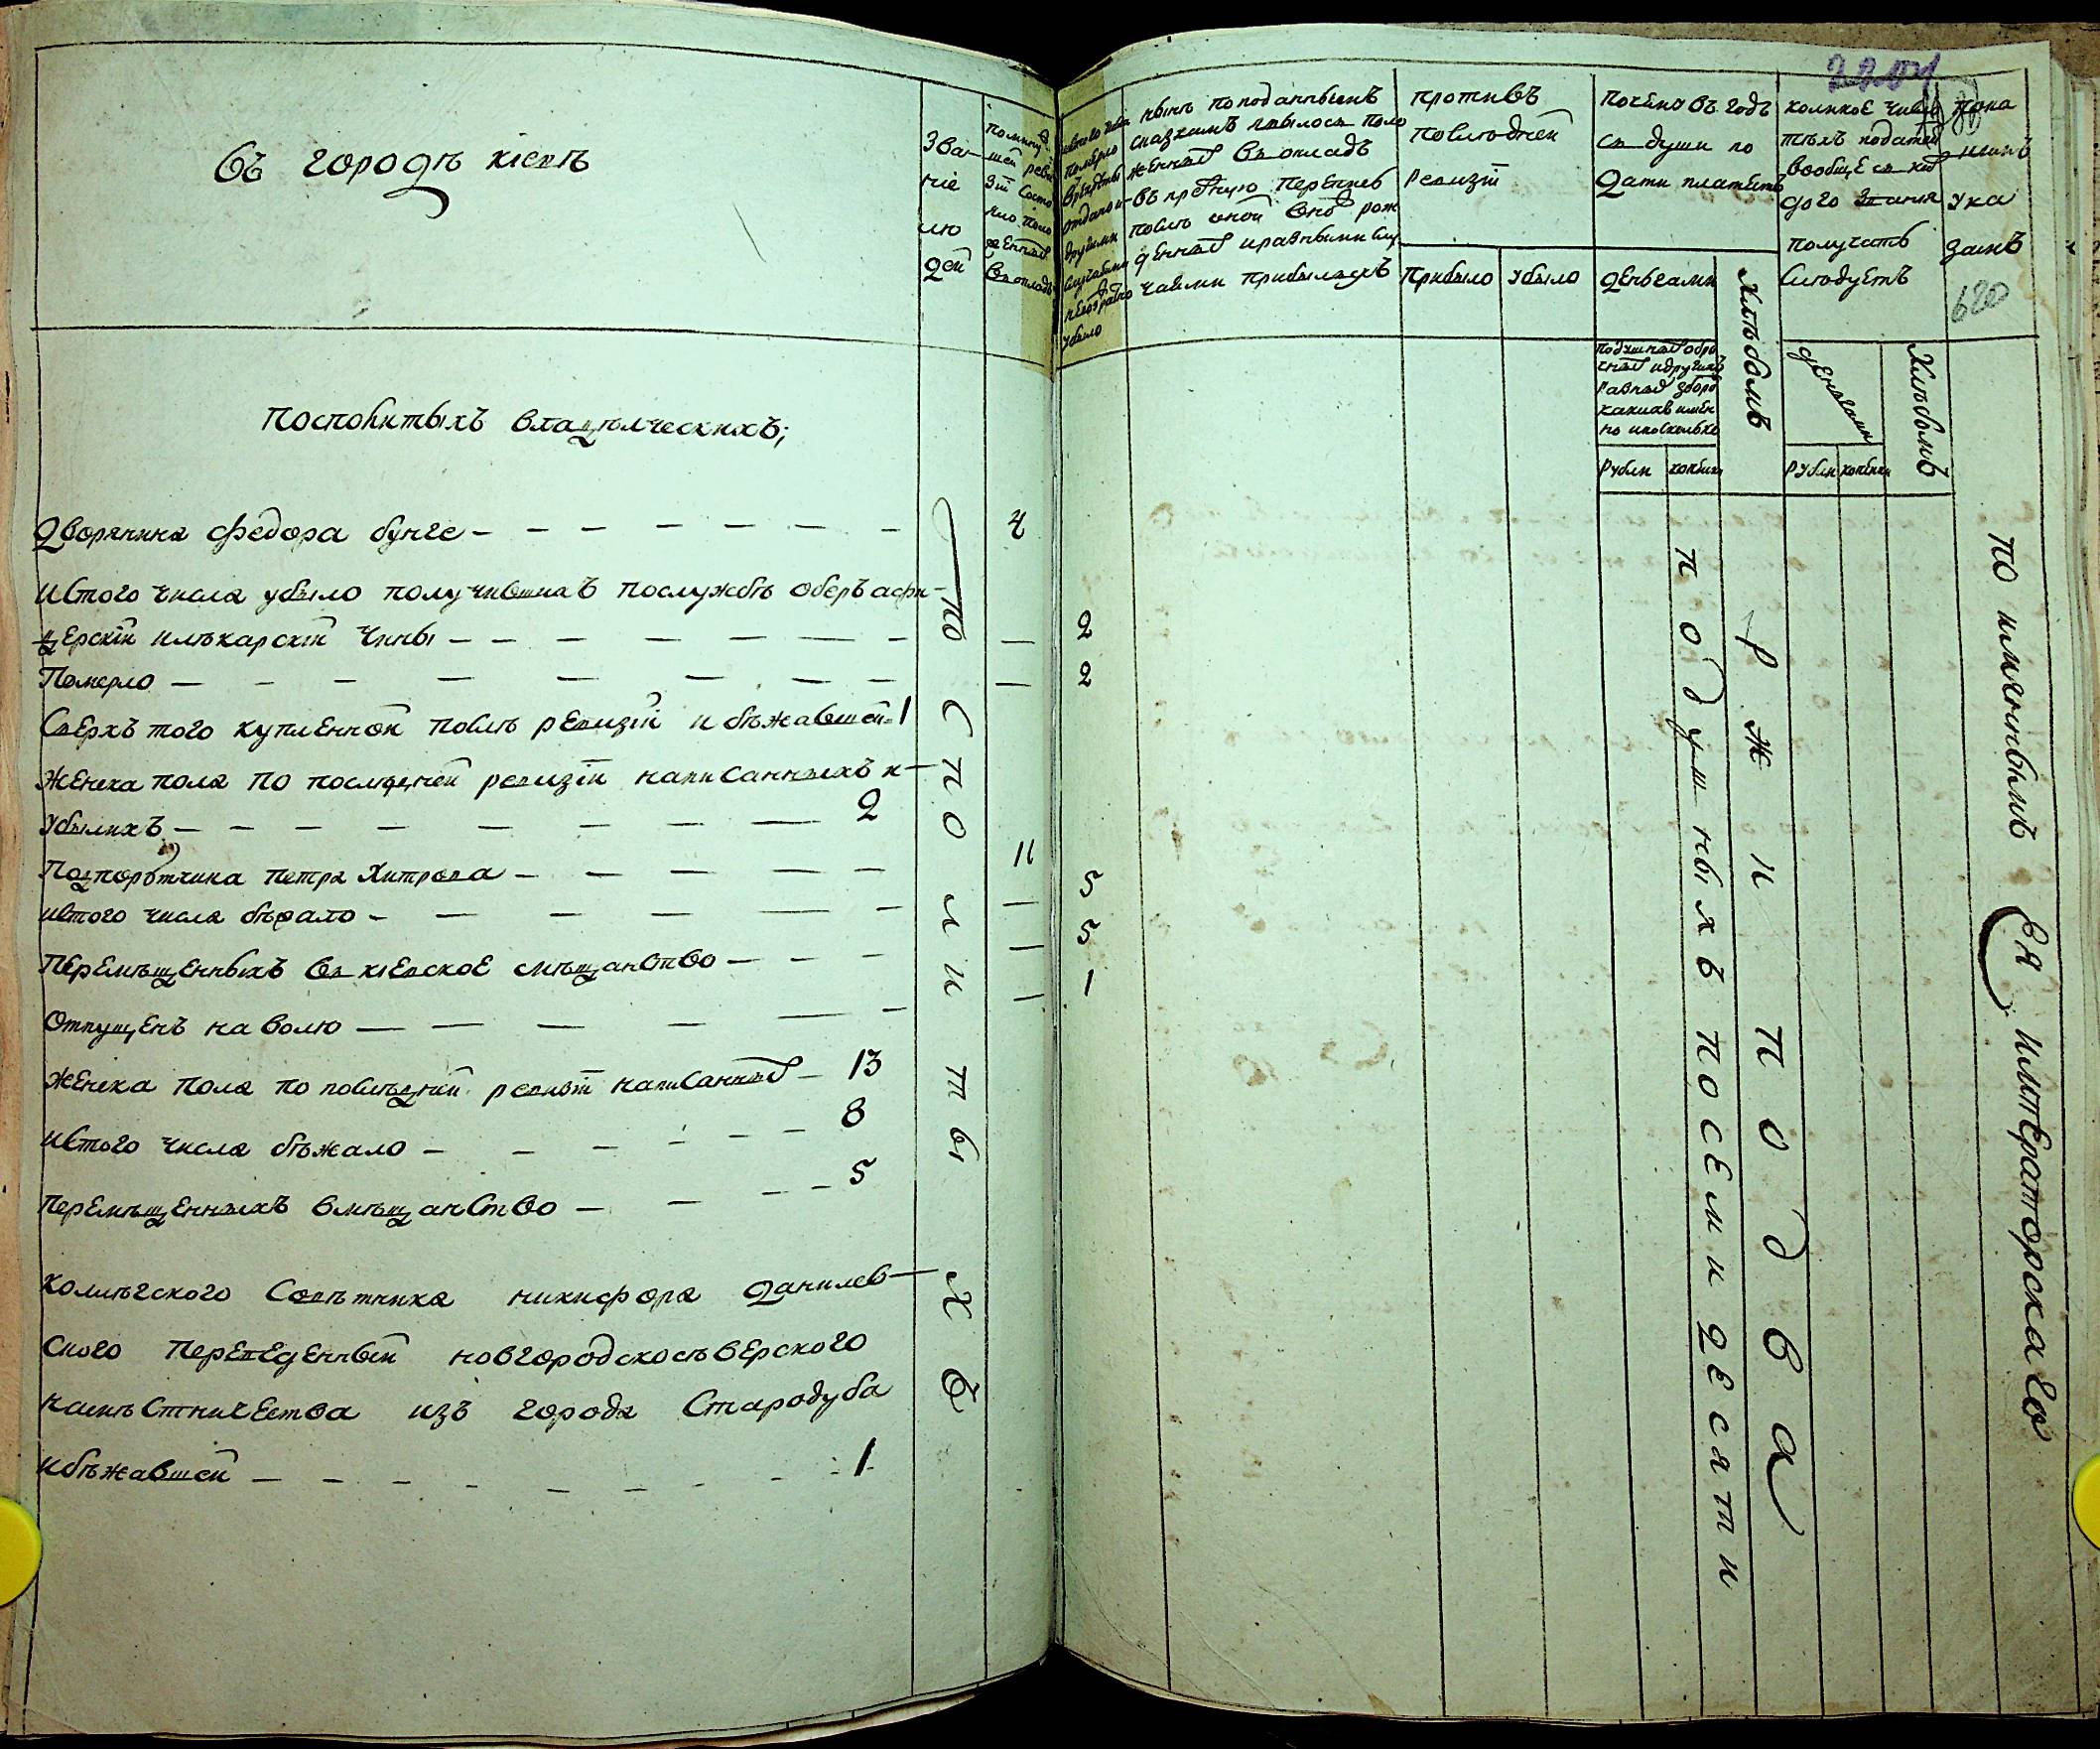 въ городѣ кіевѣ
Зва
ніе
лю
дей
помину
шей реви
зіи состо
яло поло
женныхъ
въ окладъ
изтого числа
померло
врекруты
отдано и
другими
случаями
невозвратно
убыло
нынѣ поподаннымъ
сказкамъ явилось поло
женныхъ въ окладъ
въ прежнюю перепись
послѣ оной вновь рож
денныхъ иразными слу
чаями прибылыхъ
противъ
последней
ревизіи
прибыло
убыло
почему въ годъ
съ души по
дати платить
деньгами
хлѣбомъ
подушныхъ оброч
ныхъ идругихъ
равныхъ зборовъ
какихъ имян
но исколько
рубли
копѣйки
коликое число
тѣхъ податей
вообще съ каж
дого званія
получать
слѣдуетъ
деньгами
хлѣбомъ
рубли
копѣйки
пока
кимъ
ука
замъ
620
посполитыхъ владѣлческихъ;
дворянина федора бунге 4
истого числа убыло получившихъ послужбѣ оберъ афи-
церскіи илѣкарскіи чины 2
Померло 2
Сверхъ того купленной послѣ ревизіи и бѣжавшей 1
женска пола по последней ревизіи написанныхъ и
убылихъ 2
Подпорутчика петра Хитрова 11
истого числа бѣжало 5
перемѣщенныхъ въ киевское мѣщанство 5
Отпущенъ на волю 1
женска пола по последней ревизіи написанныхъ 13
истого числа бѣжало 8
перемѣщенныхъ вмѣщанство 5
колѣгского Совѣтника никифора данилев
ского переведенный новгородскосѣверского
намѣстничества изъ города Стародуба
ибѣжавшей 1
посполитыхъ
подушныхъ посемидесяти
ржи подва
по имяннымъ Ея императорскаго